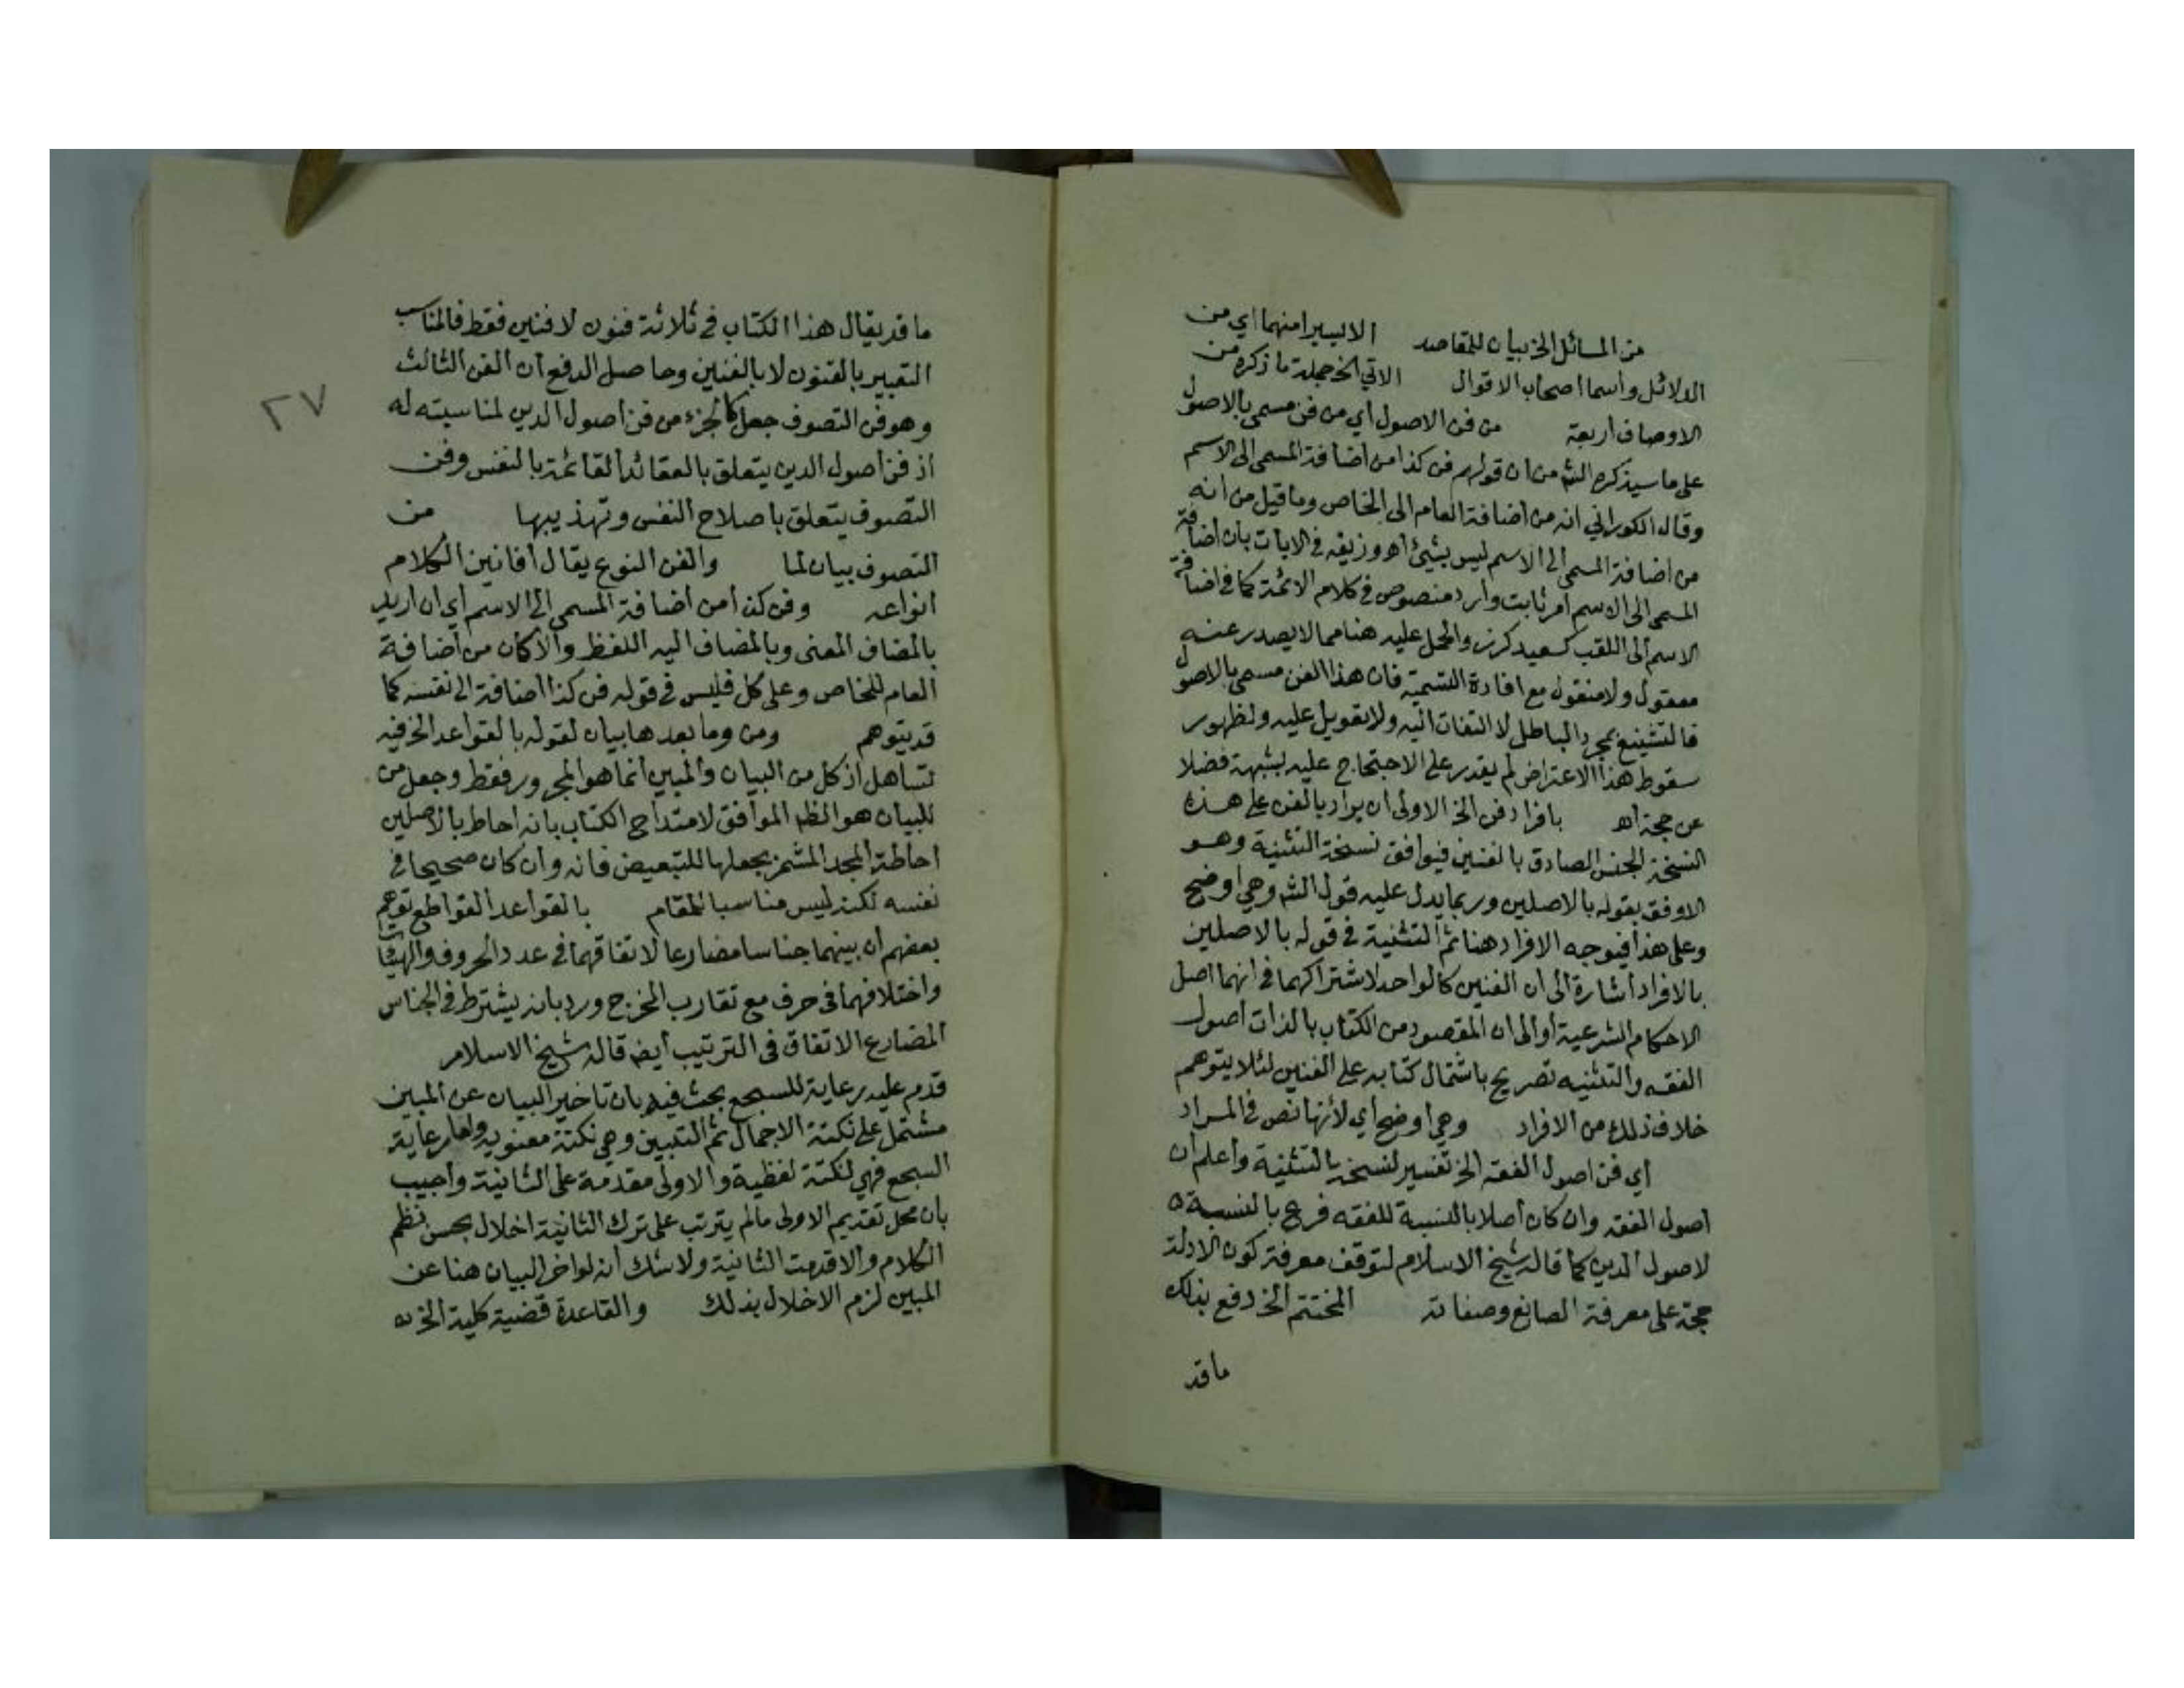 من المسائل الخ بيان للمقاصد الا يسيرا منهما اي من
الدلائل واسما اصحاب الاقوال الاتي الخ جملة ما ذكره من
الاوصاف اربعة من فن الاصول اي من فن مسمى بالاصول
على ما سيذكره الش من ان قولهم فن كذا من اضافة المسمى الى الاسم
وقال الكوراني انه من اضافة العام الى الخاص وما قيل من انه
من اضافة المسمى الى الاسم ليس بشيئ اه وزيفه في الايات بان اضافة
المسمى الى الاسم امر ثابت وارد منصوص في كلام الائمة كما في اضافة
الاسم الى اللقب كسعيد كرز والحمل عليه هنا مما لا يصدر عنه
معقول ولا منقول مع افادة التسمية فان هذا الفن مسمى بالاصول
فالتشنيع بمجرد الباطل لا التفات اليه ولا تعويل عليه ولظهور
سقوط هذا الاعتراض لم يقدر على الاحتجاج عليه بشبهة فضلا
عن حجة اه بافراد فن الخ الاولى ان يراد بالفن على هذه
النسخة الجنس الصادق بالفنين فيوافق نسخة التثنية وهو
الاوفق بقوله بالاصلين وربما يدل عليه قول الش وهي اوضح
وعلى هذا فيتوجه الافراد هنا ثم التثنية في قوله بالاصلين
بالافراد اشارة الى ان الفنين كالواحد لاشتراكهما في انهما اصل
الاحكام الشرعية او الى ان المقصود من الكتاب بالذات اصول
الفقه والتثنيه تصريح باشتمال كتابه على الفنين لئلا يتوهم
خلاف ذلك من الافراد وهي اوضح اي لأنها نص في المراد
اي فن اصول الفقه الخ تفسير لنسخة بالتثنية واعلم ان
اصول الفقه وان كان اصلا بالنسبة للفقه فرع بالنسبة
لاصول الدين كما قاله شيخ الاسلام لتوقف معرفة كون الادلة
حجة على معرفة الصانع وصفاته المختتم الخ دفع بذلك
ما قد
ما قد يقال هذا الكتاب في ثلاثة فنون لا فنين فقط فالمناسب
التعبير بالفنون لا بالفنين وحاصل الدفع ان الفن الثالث
وهو فن التصوف جعل كالجزء من فن اصول الدين لمناسبته له
اذ فن اصول الدين يتعلق بالعقائد القائمة بالنفس وفن
التصوف يتعلق باصلاح النفس وتهذيبها من
التصوف بيان لما والفن النوع يقال افانين الكلام
انواعه وفن كذا من اضافة المسمى الى الاسم اي ان اريد
بالمضاف المعنى وبالمضاف اليه اللفظ والا كان من اضافة
العام للخاص وعلى كل فليس في قوله فن كذا اضافة الى نفسه كما
قد يتوهم ومن وما بعدها بيان لقوله بالقواعد الخ فيه
تساهل اذ كل من البيان والمبين انما هو المجرور فقط وجعل من
للبيان هو النظم الموافق لامتداح الكتاب بانه احاط بالاصلين
احاطة المجد المشمر بجعلها للتبعيض فانه وان كان صحيحا في
نفسه لكنه ليس مناسبا للمقام بالقواعد القواطع توهم
بعضهم ان بينهما جناسا مضارعا لاتفاقهما في عدد الحروف والهيئات
واختلافهما في حرف مع تقارب المخرج ورد بانه يشترط في الجناس
المضارع الاتفاق في الترتيب ايضا قاله شيخ الاسلام
قدم عليه رعاية للسجع بحث فيه بان تاخير البيان عن المبين
مشتمل على نكتة الاجمال ثم التبيين وهي نكتة معنوية واما رعاية
السجع فهي لنكتة لفظية والاولى مقدمة على الثانية واجيب
بان محل تقديم الاولى مالم يترتب على ترك الثانية اخلال بحسن نظم
الكلام والا قدمت الثانية ولا شك انه لو اخر البيان هنا عن
المبين لزم الاخلال بذلك والقاعدة قضية كلية الخ
٢٧